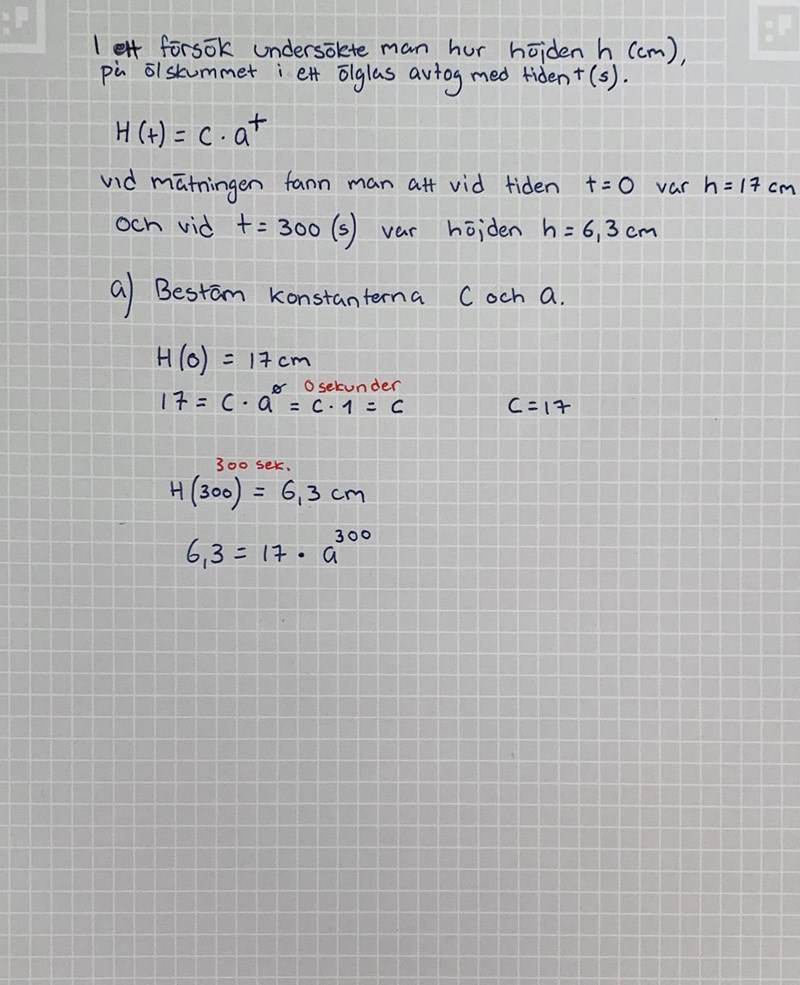 I ett försök undersökte man hur höjden h (cm),
på ölskummet i ett ölglas avtog med tiden t (s).
H(t) = C · a^t
vid mätningen fann man att vid tiden t = 0 var h = 17 cm
och vid t = 300 (s) var höjden h = 6,3 cm
a) Bestäm konstanterna C och a.
H(0) = 17 cm
0 sekunder
17 = C · a^0 = C · 1 = C C = 17
300 sek.
H(300) = 6,3 cm
6,3 = 17 · a^300